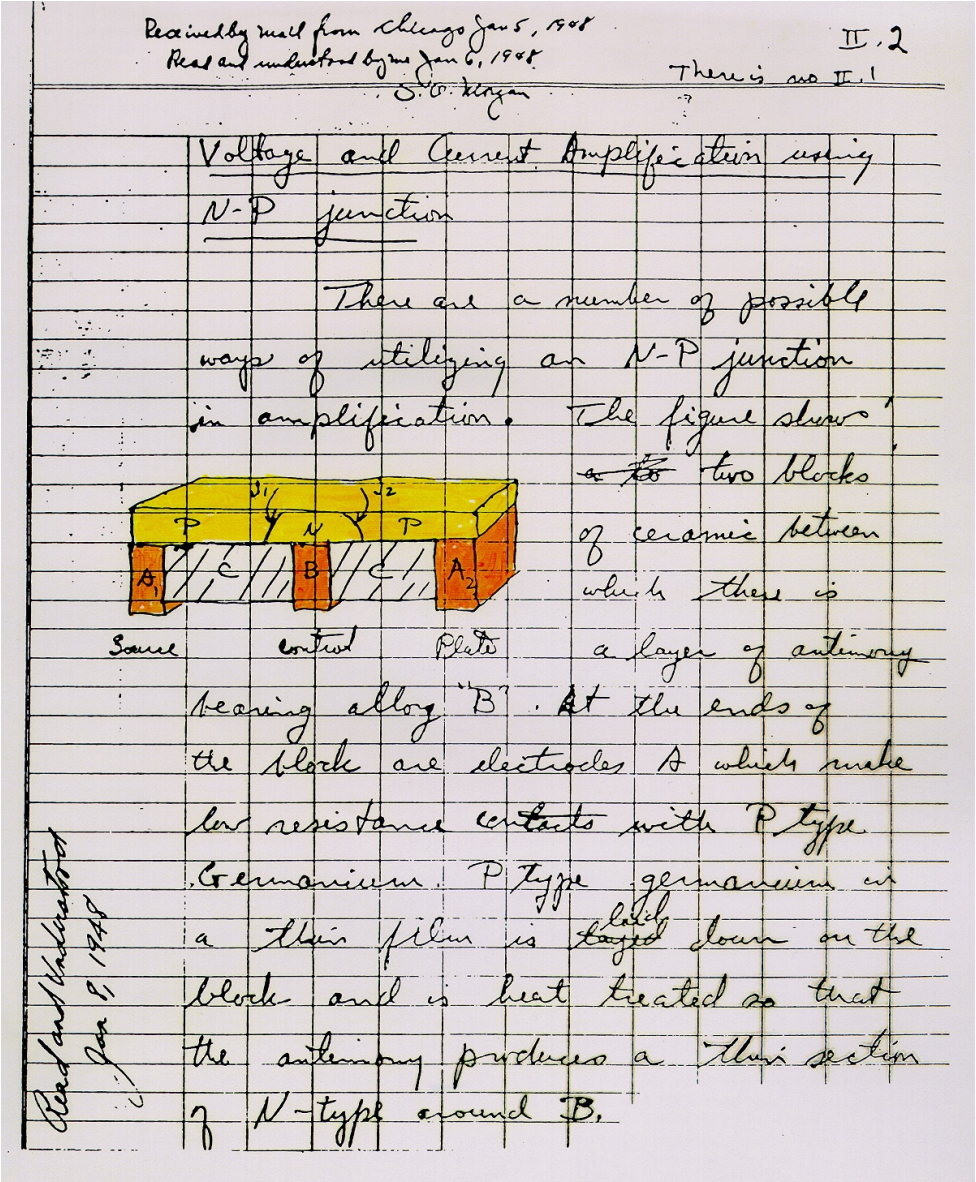 Received by mail from Chicago Jan 5, 1948
Read and understood by me Jan 6, 1948
S. O. Morgan
II.2
There is no II.1
?
Voltage and Current Amplification using
N-P junction
There are a number of possible
ways of utilizing an N-P junction
in amplification. The figure shows
two blocks
of ceramic between
which there is
a layer of antimony
J1 J2
P N P
A1 C B C A2
Source control Plate
bearing alloy "B". At the ends of
the block are electrodes A which make
low resistance contacts with P type
Germanium. P type germanium in
a thin film is laid down on the
block and is heat treated so that
the antimony produces a thin section
of N-type around B.
Read and Understood
Jan 8, 1948